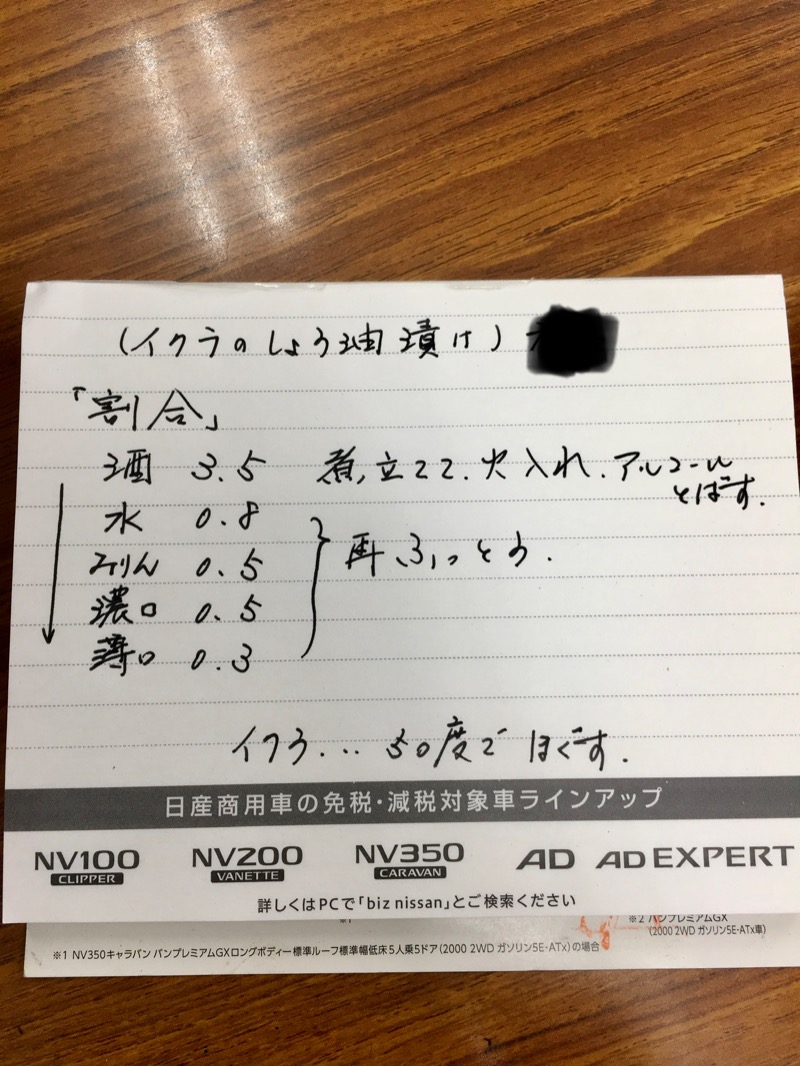 (イクラのしょう油漬け)
「割合」
酒 3.5 煮立てて、火入れ、アルコール
とばす.
水 0.8
みりん 0.5 再ふっとう.
濃口 0.5
薄口 0.3
イクラ... 50度でほぐす.
日産商用車の免税・減税対象車ラインアップ
NV100 NV200 NV350 AD AD EXPERT
CLIPPER VANETTE CARAVAN
詳しくはPCで「biz nissan」とご検索ください
※1
※2 バンプレミアムGX
(2000 2WD ガソリン5E-ATx車)
※1 NV350キャラバン バンプレミアムGXロングボディー標準ルーフ標準幅低床5人乗5ドア(2000 2WD ガソリン5E-ATx)の場合